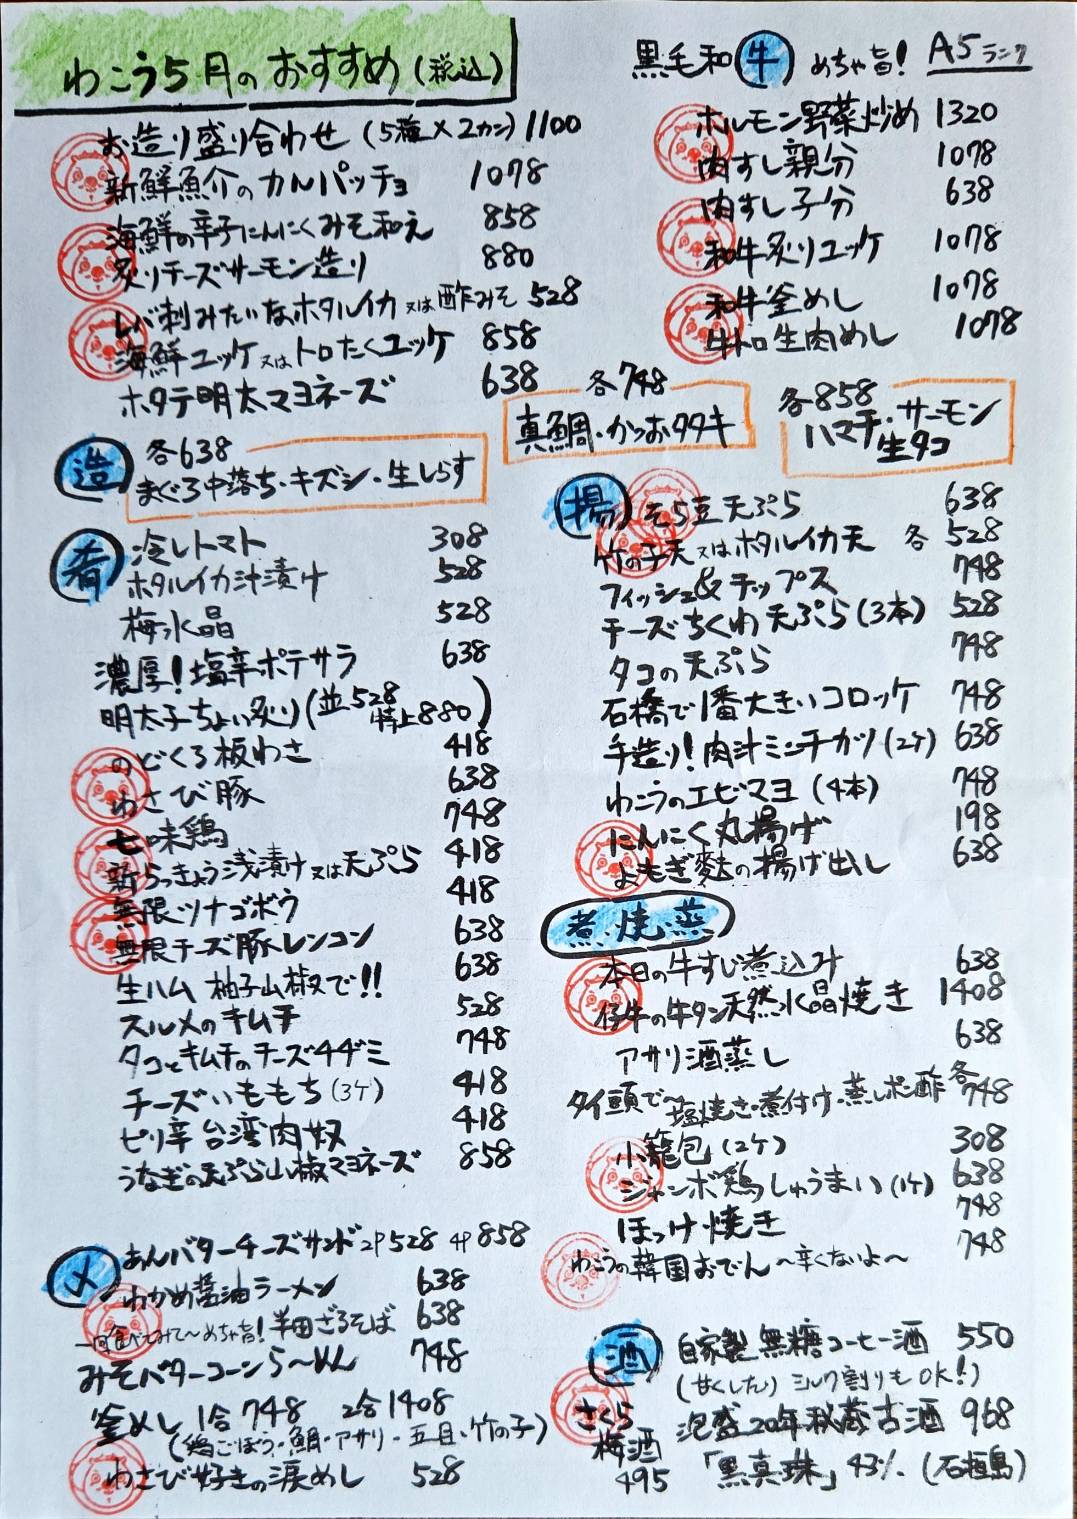 わこう5月のおすすめ(税込)
お造り盛り合わせ (5種×2カン) 1100
新鮮魚介のカルパッチョ 1078
海鮮の辛子にんにくみそ和え 858
炙りチーズサーモン造り 880
レバ刺みたいなホタルイカ又は酢みそ 528
海鮮ユッケ又はトロたくユッケ 858
ホタテ明太マヨネーズ 638
黒毛和牛 めちゃ旨! A5ランク
ホルモン野菜炒め 1320
肉すし親分 1078
肉すし子分 638
和牛炙りユッケ 1078
和牛釜めし 1078
牛トロ生肉めし 1078
造 各638
まぐろ中落ち・キズシ・生しらす
各748
真鯛・かつおタタキ
各858
ハマチ・サーモン
生タコ
肴 冷しトマト 308
ホタルイカ汁漬け 528
梅水晶 528
濃厚!塩辛ポテサラ 638
明太子ちょい炙り(並528 特上880)
のどくろ板わさ 418
わさび豚 638
七味鶏 748
新らっきょう浅漬け又は天ぷら 418
無限ツナゴボウ 418
無限チーズ豚レンコン 638
生ハム 柚子山椒で!! 638
スルメのキムチ 528
タコとキムチのチーズチヂミ 748
チーズいももち(3ケ) 418
ピリ辛台湾肉奴 418
うなぎの天ぷら山椒マヨネーズ 858
揚 そら豆天ぷら 638
竹の子天又はホタルイカ天 各528
フィッシュ&チップス 748
チーズちくわ天ぷら(3本) 528
タコの天ぷら 748
石橋で1番大きいコロッケ 748
手造り!肉汁ミンチカツ(2ケ) 638
わこうのエビマヨ(4本) 748
にんにく丸揚げ 198
よもぎ麩の揚げ出し 638
煮・焼・蒸
本日の牛すじ煮込み 638
仔牛の牛タン天然水晶焼き 1408
アサリ酒蒸し 638
タイ頭で〜塩焼き・煮付け・蒸しポン酢 各748
小籠包(2ケ) 308
ジャンボ鶏しゅうまい(1ケ) 638
ほっけ焼き 748
わこうの韓国おでん〜辛くないよ〜 748
〆 あんバターチーズサンド 2P528 4P858
わかめ醤油ラーメン 638
一回食べてみて〜めちゃ旨!半田ざるそば 638
みそバターコーンら〜めん 748
釜めし 1合748 2合1408
(鶏ごぼう・鯛・アサリ・五目・竹の子)
わさび好きの涙めし 528
酒 自家製無糖コーヒー酒 550
(甘くしたり ミルク割りもOK!)
さくら
梅酒
495
泡盛20年秘蔵古酒 968
「黒真珠」43% (石垣島)